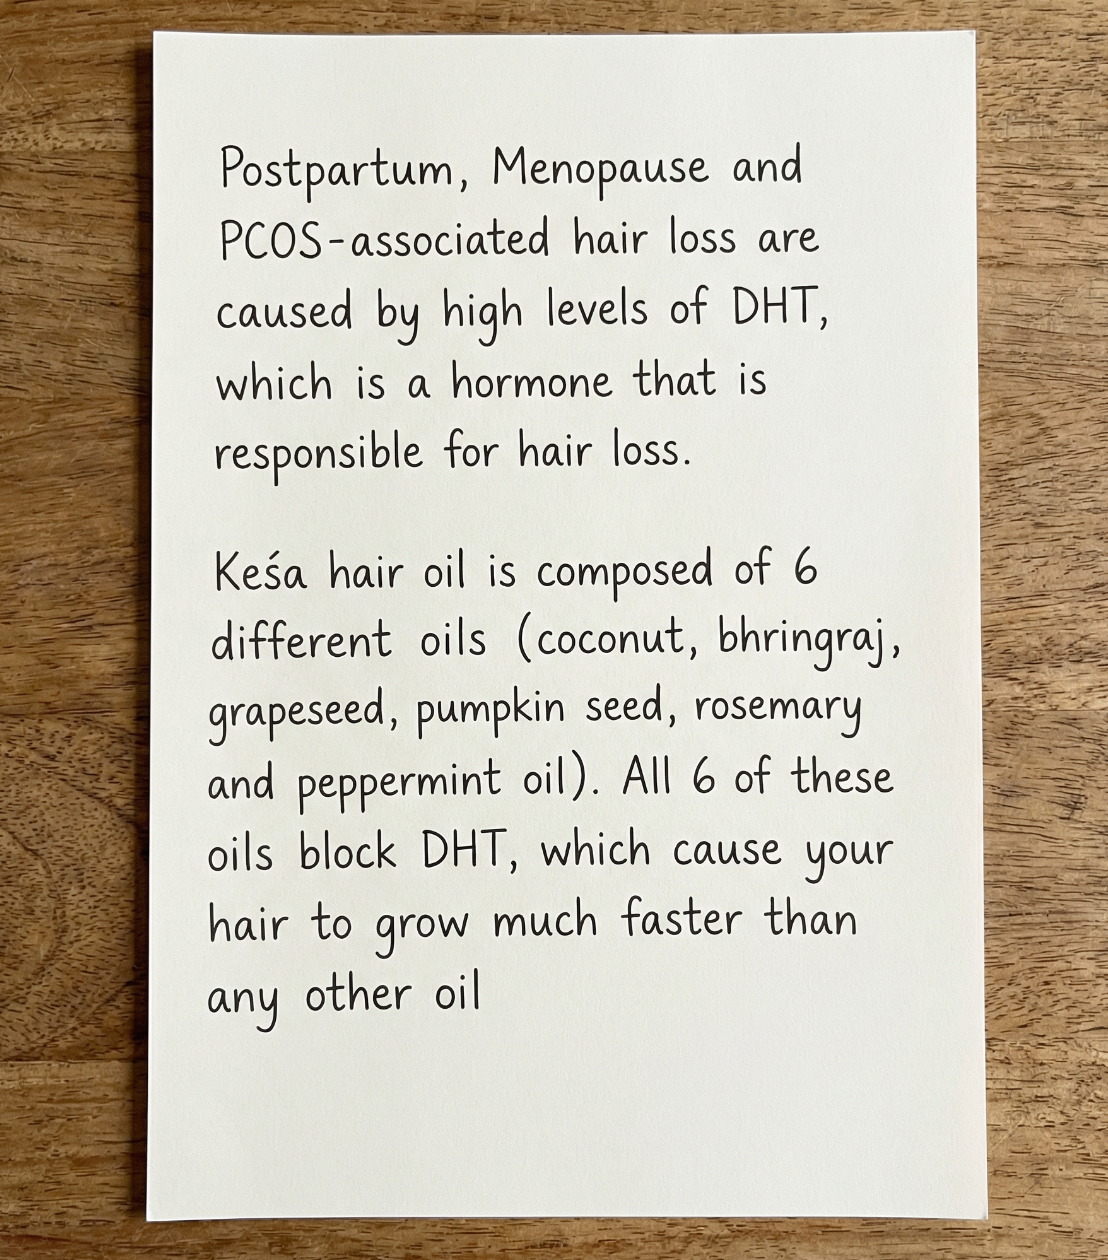 Postpartum, Menopause and
PCOS-associated hair loss are
caused by high levels of DHT,
which is a hormone that is
responsible for hair loss.
Keśa hair oil is composed of 6
different oils (coconut, bhringraj,
grapeseed, pumpkin seed, rosemary
and peppermint oil). All 6 of these
oils block DHT, which cause your
hair to grow much faster than
any other oil